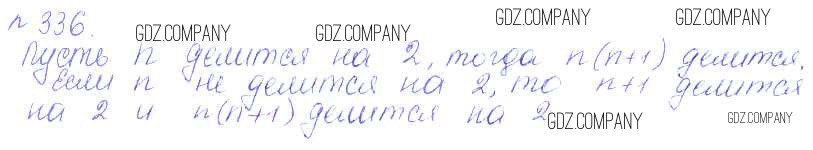 n 336.
GDZ.COMPANY GDZ.COMPANY GDZ.COMPANY GDZ.COMPANY
Пусть n делится на 2, тогда n(n+1) делится.
Если n не делится на 2, то n+1 делится
на 2 и n(n+1) делится на 2
GDZ.COMPANY GDZ.COMPANY